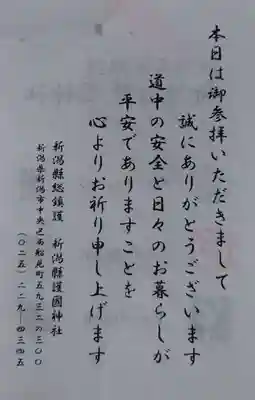 本日は御参拝いただきまして
誠にありがとうございます
道中の安全と日々のお暮らしが
平安でありますことを
心よりお祈り申し上げます
新潟縣総鎮護 新潟縣護國神社
新潟県新潟市中央区西船見町五九三二の三〇〇
(〇二五)二二九―四三四五